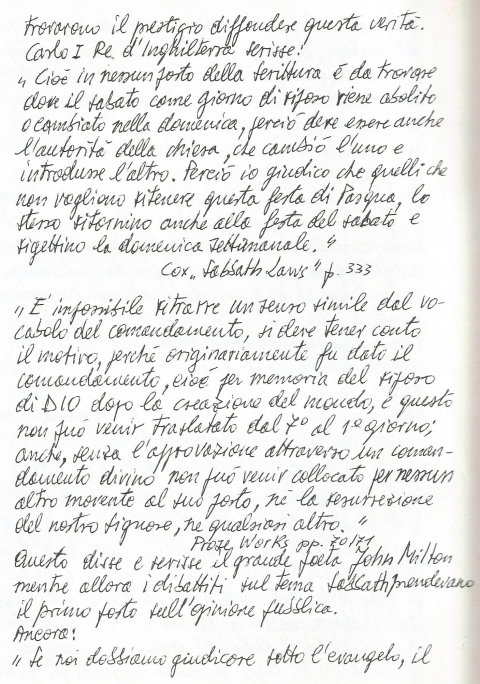 trovarono il prestigio diffondere questa verità.
Carlo I Re d'Inghilterra scrisse:
„ Cioè in nessun posto della Scrittura è da trovare
dove il sabato come giorno di riposo viene abolito
o cambiato nella domenica, perciò deve essere anche
l'autorità della chiesa, che cambiò l'uno e
introdusse l'altro. Perciò io giudico che quelli che
non vogliono ritenere questa festa di Pasqua, lo
stesso ritornino anche alla festa del sabato e
rigettino la domenica settimanale. "
Cox „ Sabbath Laws " p. 333
„ E' impossibile ritrarre un senso simile dal vo-
cabolo del comandamento, si deve tener conto
il motivo, perché originariamente fu dato il
comandamento, cioè per memoria del riposo
di DIO dopo la creazione del mondo, e questo
non può venir traslatato dal 7° al 1° giorno;
anche, senza l'approvazione attraverso un coman-
damento divino non può venir collocato per nessun
altro movente al suo posto, nè la resurrezione
del nostro signore, nè qualsiasi altro. "
Prose Works pp. 70/71
Questo disse e scrisse il grande poeta John Milton
mentre allora i dibattiti sul tema Sabbath prendevano
il primo posto sull'opinione pubblica.
Ancora:
„ Se noi dobbiamo giudicare sotto l'evangelo, il